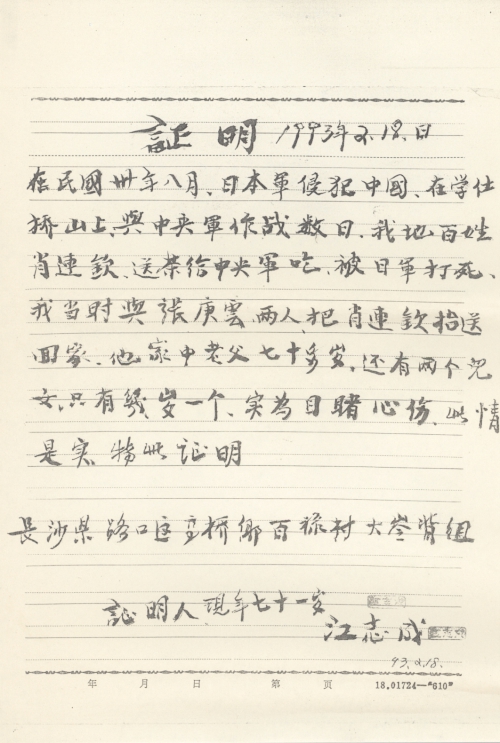 証明 1993年2.18.日
在民國卅年八月、日本軍侵犯中國、在学仕
桥山上、與中央軍作战数日、我地百姓
肖連欽、送茶给中央軍吃、被日軍打死、
我当时與張庚雲、两人、把肖連欽抬送
回家、他家中老父七十多岁、还有两个兒
女、只有幾岁一个、实為目睹心伤、此情
是实、特此証明
長沙県路口区高桥鄉百禄村大嵾背組
証明人、現年七十一岁
江志成
93.2.18.
年 月 日 第 页 18.01724—"610"